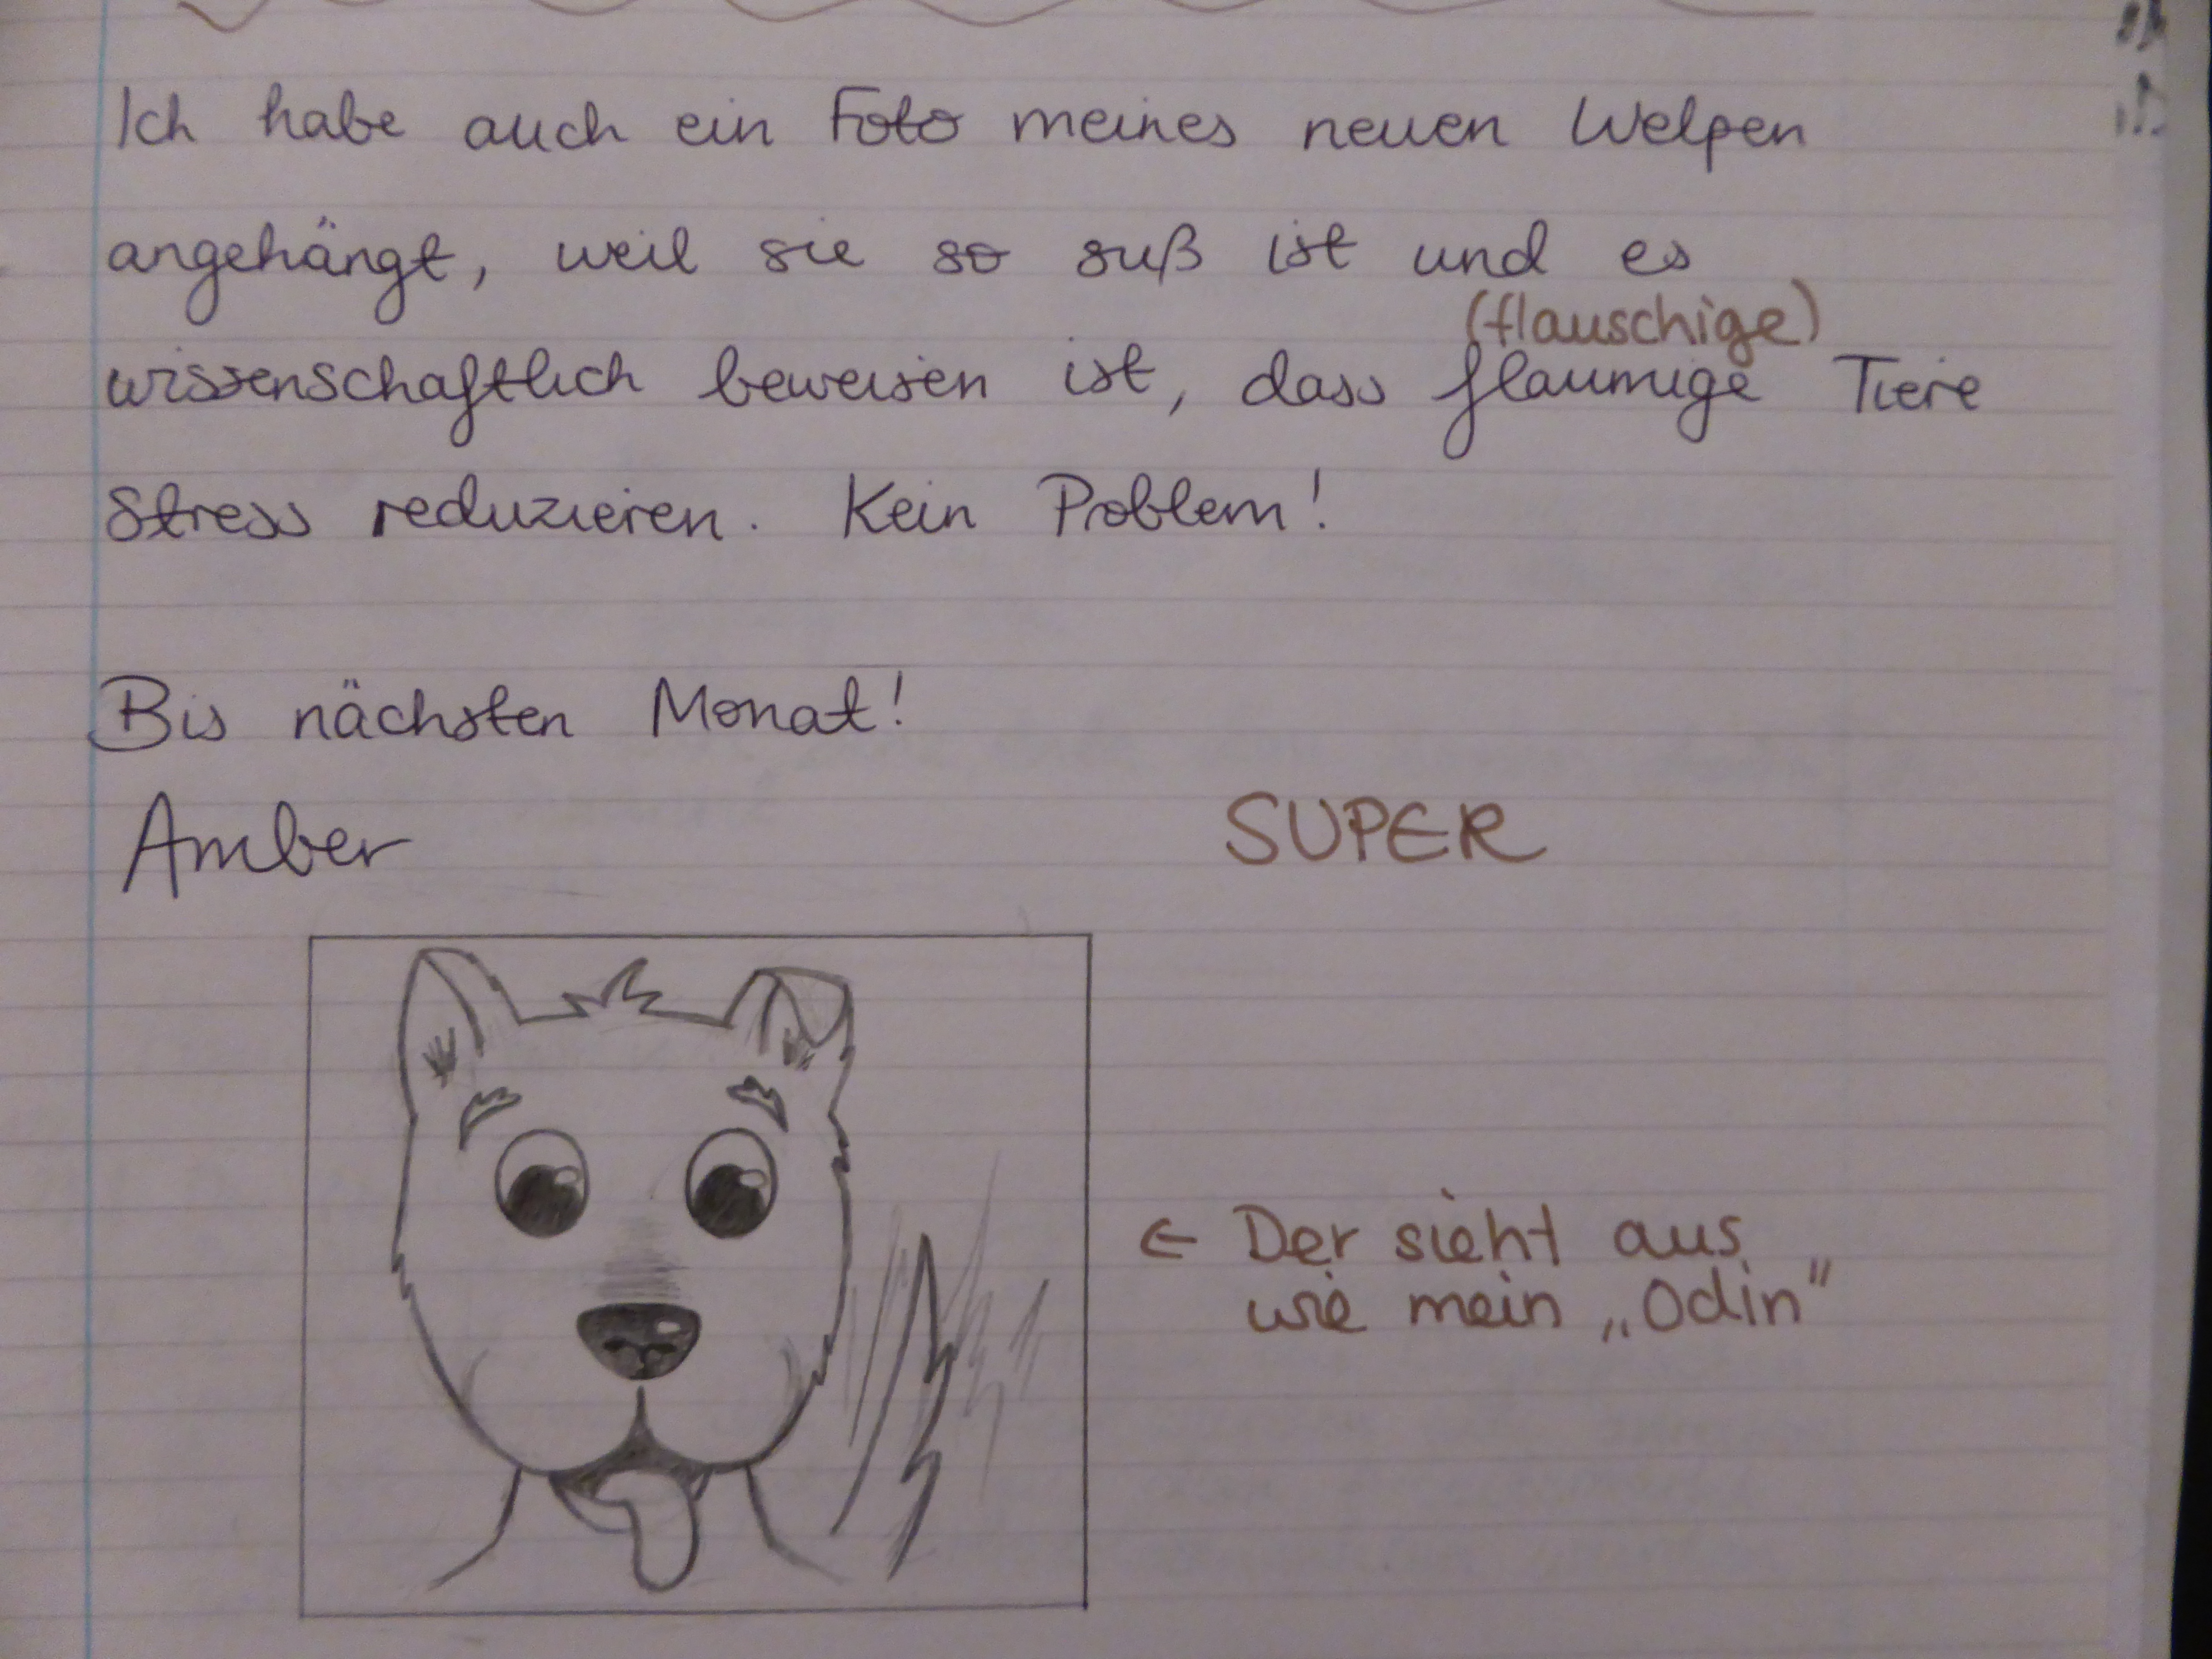 Ich habe auch ein Foto meines neuen Welpen
angehängt, weil sie so suß ist und es
(flauschige)
wissenschaftlich beweisen ist, dass flaumige Tiere
Stress reduzieren. Kein Problem!
Bis nächsten Monat!
Amber
SUPER
← Der sieht aus
wie mein „Odin"